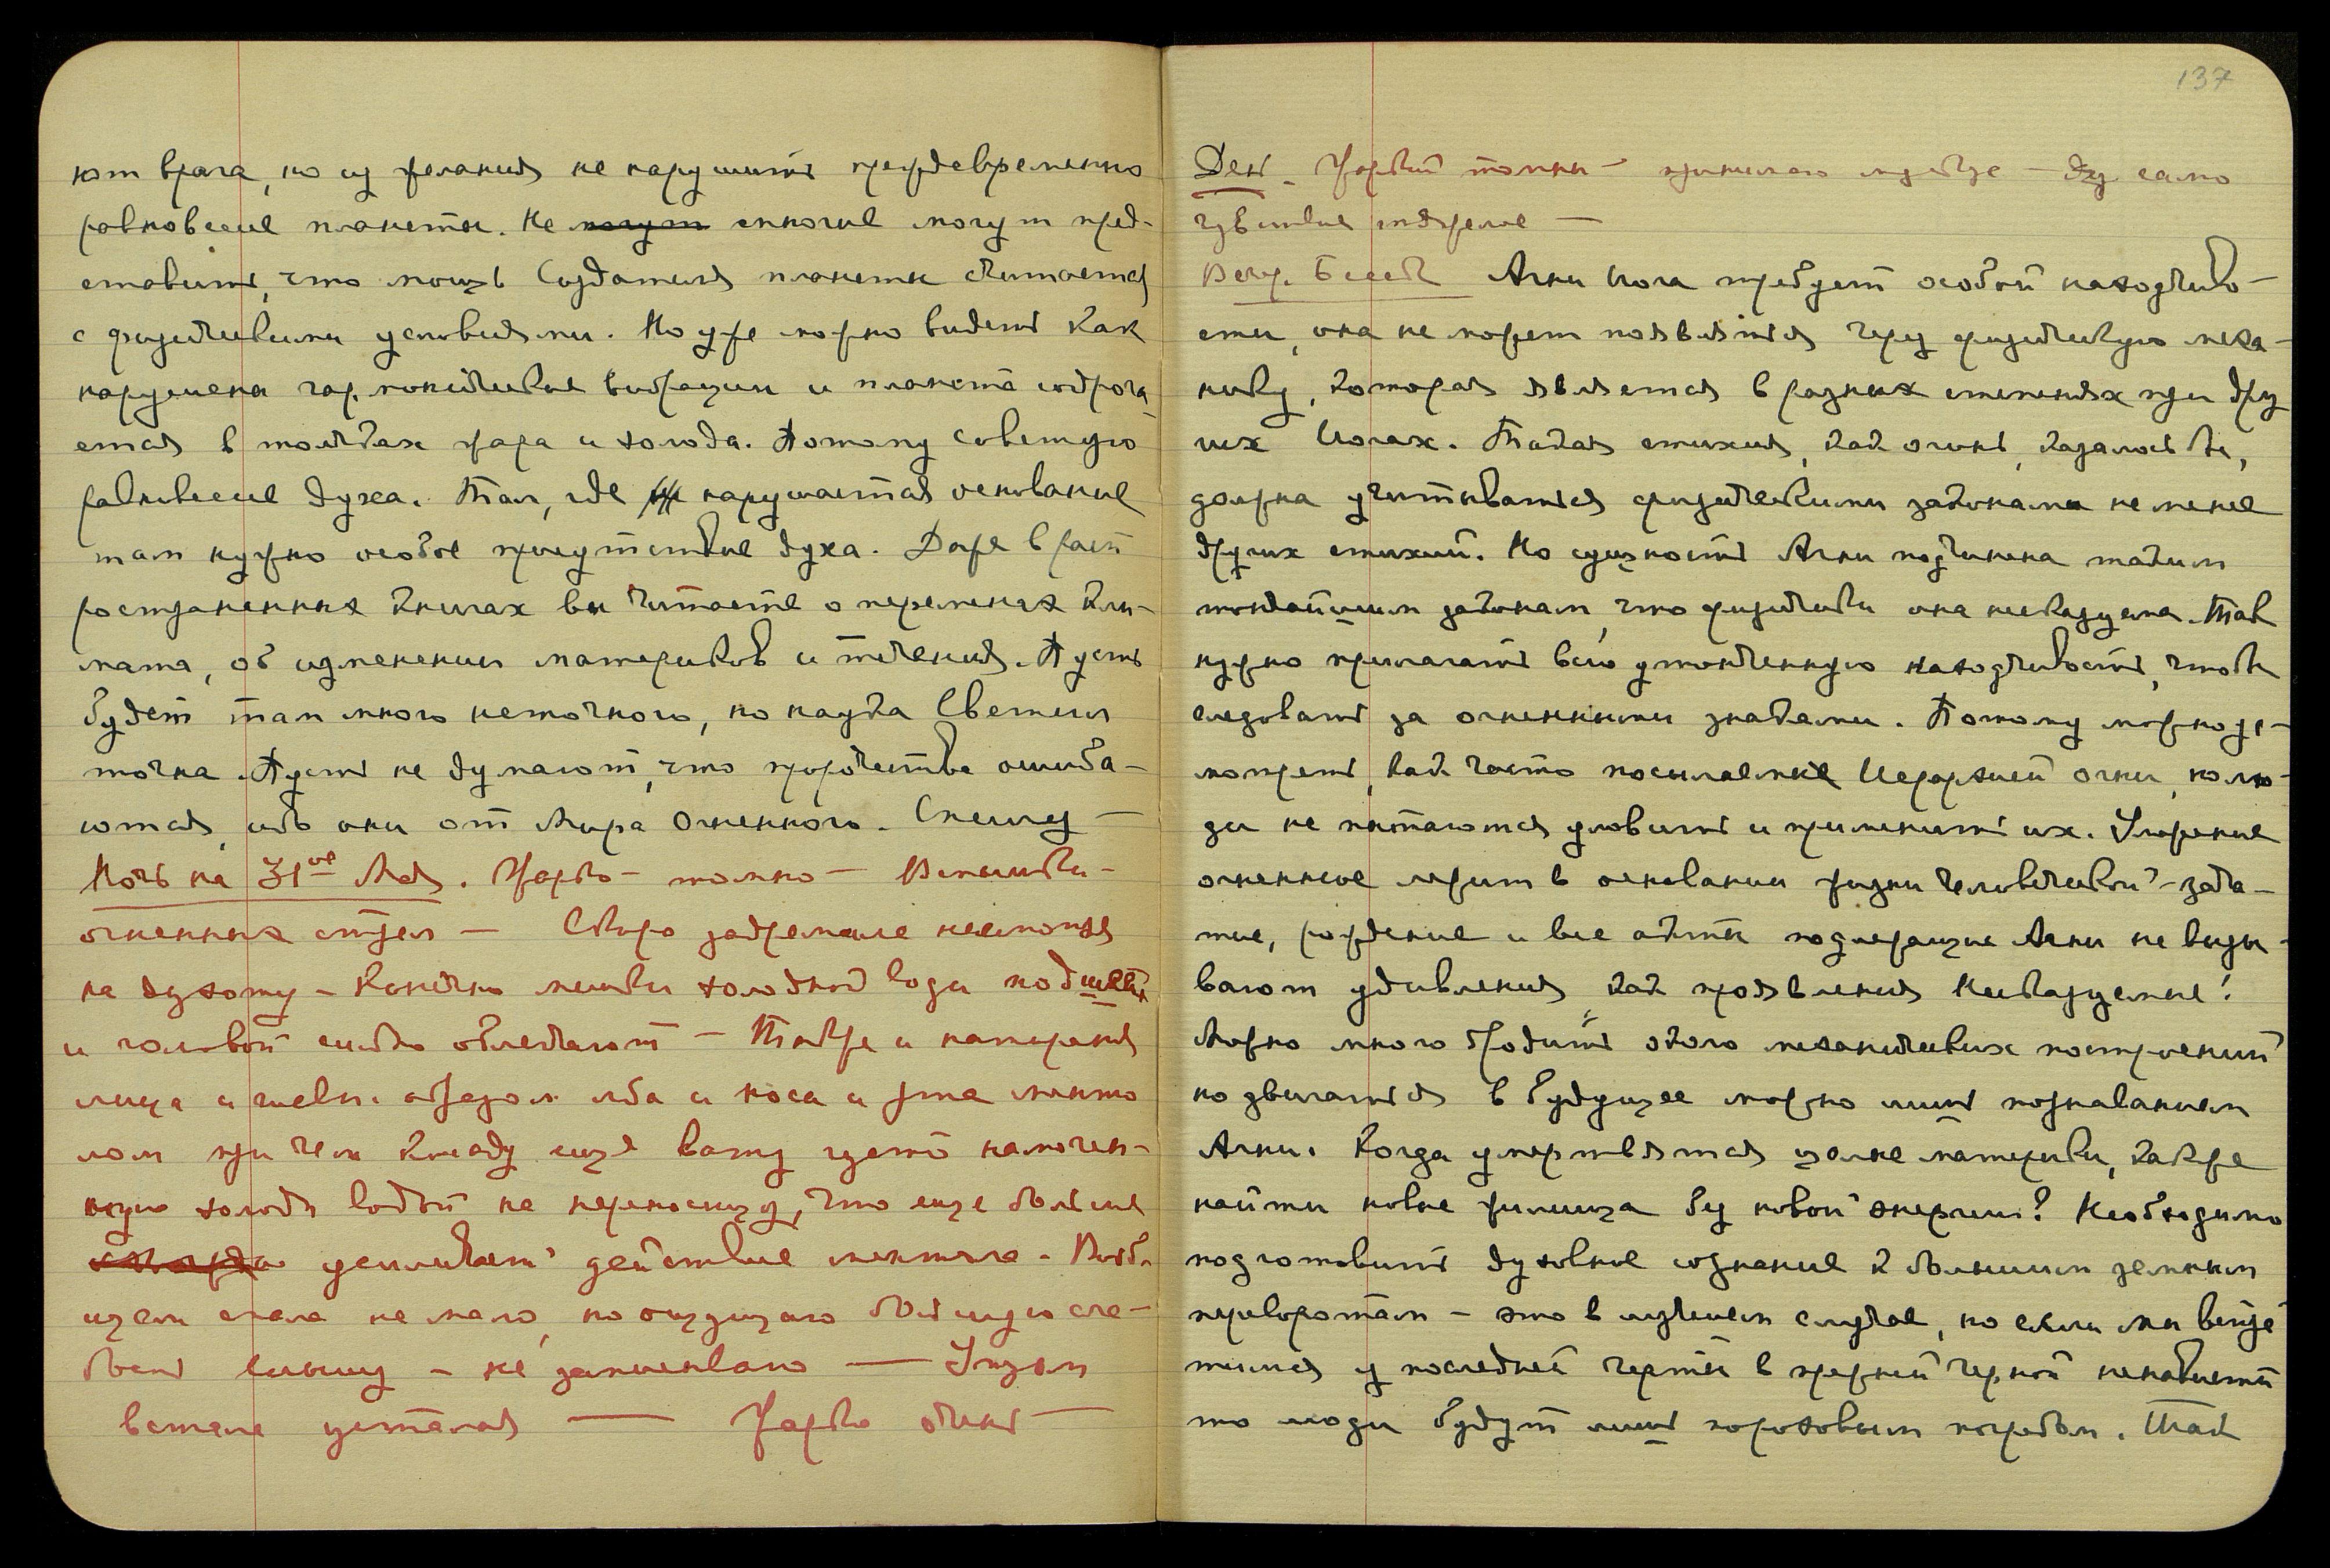 ют врага, но из желания не нарушить преждевременно
равновесие планеты. Не могут многие могут пред-
ставить, что мощь Создателя планеты считается
с физическими условиями. Но уже можно видеть как
нарушены гармонические вибрации и планета содрога-
ется в толчках жара и холода. Потому советую
равновесие духа. Там, где нарушается основание
там нужно особое присутствие духа. Даже в расп
ространенных книгах вы читаете о переменах кли-
мата, об изменении материков и течения. Пусть
будет там много неточного, но наука Светил
точна. Пусть не думают, что пророчества ошиба-
ются, ибо они от Мира Огненного. Спешу —
Ночь на 31ое Мая. Жарко – томно – Вспышки –
огненных стрел – Скоро задремала несмотря
на духоту – Конечно мешки холодной воды под шеей
и головой сильно облегчают – Также и натирания
лица и шеи. обрезом лба и носа и рта менто
лом при чем кладу еще вату густо намочен-
ную холодн водой на переносицу, что еще больше
усиливает действие ментола –
щем спала не мало, но ощущаю
слышу – не записываю —
встала усталая — Жарко очень —
137
День – Жаркий томны – – само
чувствие тяжелое —
Вечер. Бесед Агни Йога требует особой находчиво-
сти, она не может появляться через физическую меха-
нику, которая является в разных степенях при дру
гих Йогах. Такая стихия, как огонь, казалось бы,
должна учитываться физическими законами не менее
других стихий. Но сущность Агни подчинена таким
тончайшим законам, что физически она несказуема. Так
нужно прилагать всю утонченную находчивость, чтобы
следовать за огненными знаками. Потому можно ус-
мотреть, как часто посылаемые Иерархией огни, но лю-
ди не пытаются уловить и применить их. Умерение
огненное лежит в основании жизни человеческой – зача-
тие, рождение и все акты подлежащие Агни не вызы-
вают удивления как проявления Несказуемые!
Можно много бродить около механических построений
но двигаться в будущее можно лишь познаванием
Агни. Когда умертвятся целые материки, как же
найти новые жилища без новой энергии? Необходимо
подготовить духовное сознание к большим земным
переворотам – это в лучшем случае, но если мы встре
тимся у последней черты в прежней черной ненависти
то люди будут лишь пороховым погребом. Так